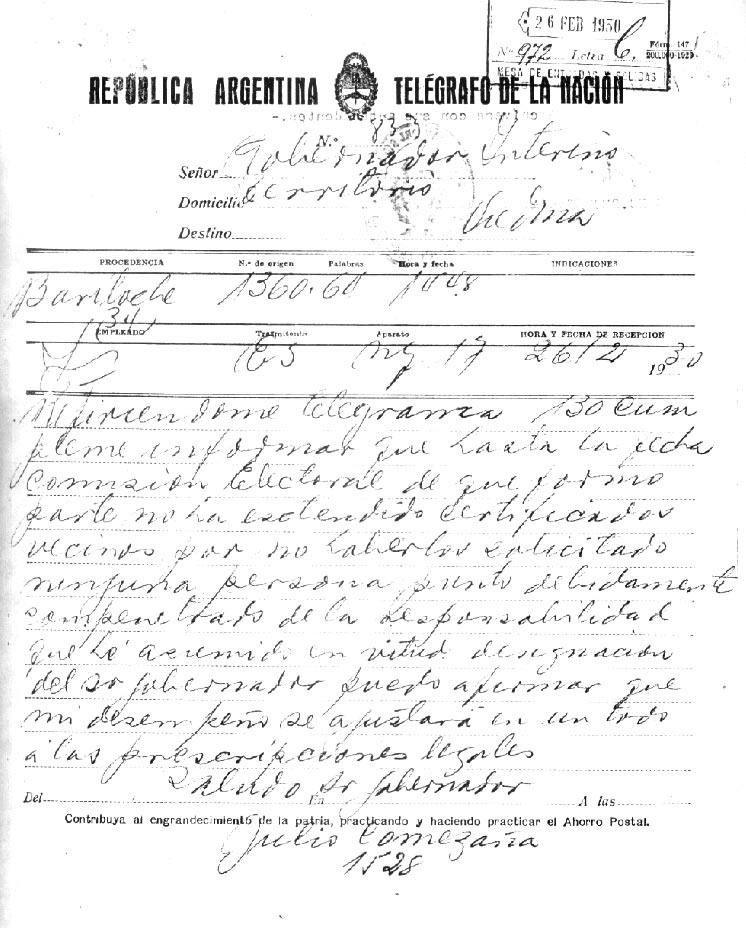 26 FEB 1930
Nº 972 Letra C,
Fórm. 147
MESA DE ENTRADAS Y SALIDAS
REPÚBLICA ARGENTINA TELÉGRAFO DE LA NACIÓN
N.º
Señor Gobernador Interino
Domicilio Territorio
Destino Viedma
PROCEDENCIA N.º de origen Palabras Hora y fecha INDICACIONES
Bariloche 1360. 60
34
EMPLEADO Trasmitente Aparato HORA Y FECHA DE RECEPCION
26/2 1930
Refiriendome telegrama 130 cum
pleme informar que hasta la fecha
Comision Electoral de que formo
parte no ha esctendido certificados
vecinos por no haberlos solicitado
ninguna persona punto debidamente
compenetrado de la responsabilidad
que he asumido en vitud designacion
del sr gobernador puedo afirmar que
mi desempeño se ajustará en un todo
á las prescripciones legales
Saludo sr gobernador
Del En A las
Contribuya al engrandecimiento de la patria, practicando y haciendo practicar el Ahorro Postal.
Julio Comezaña
1528